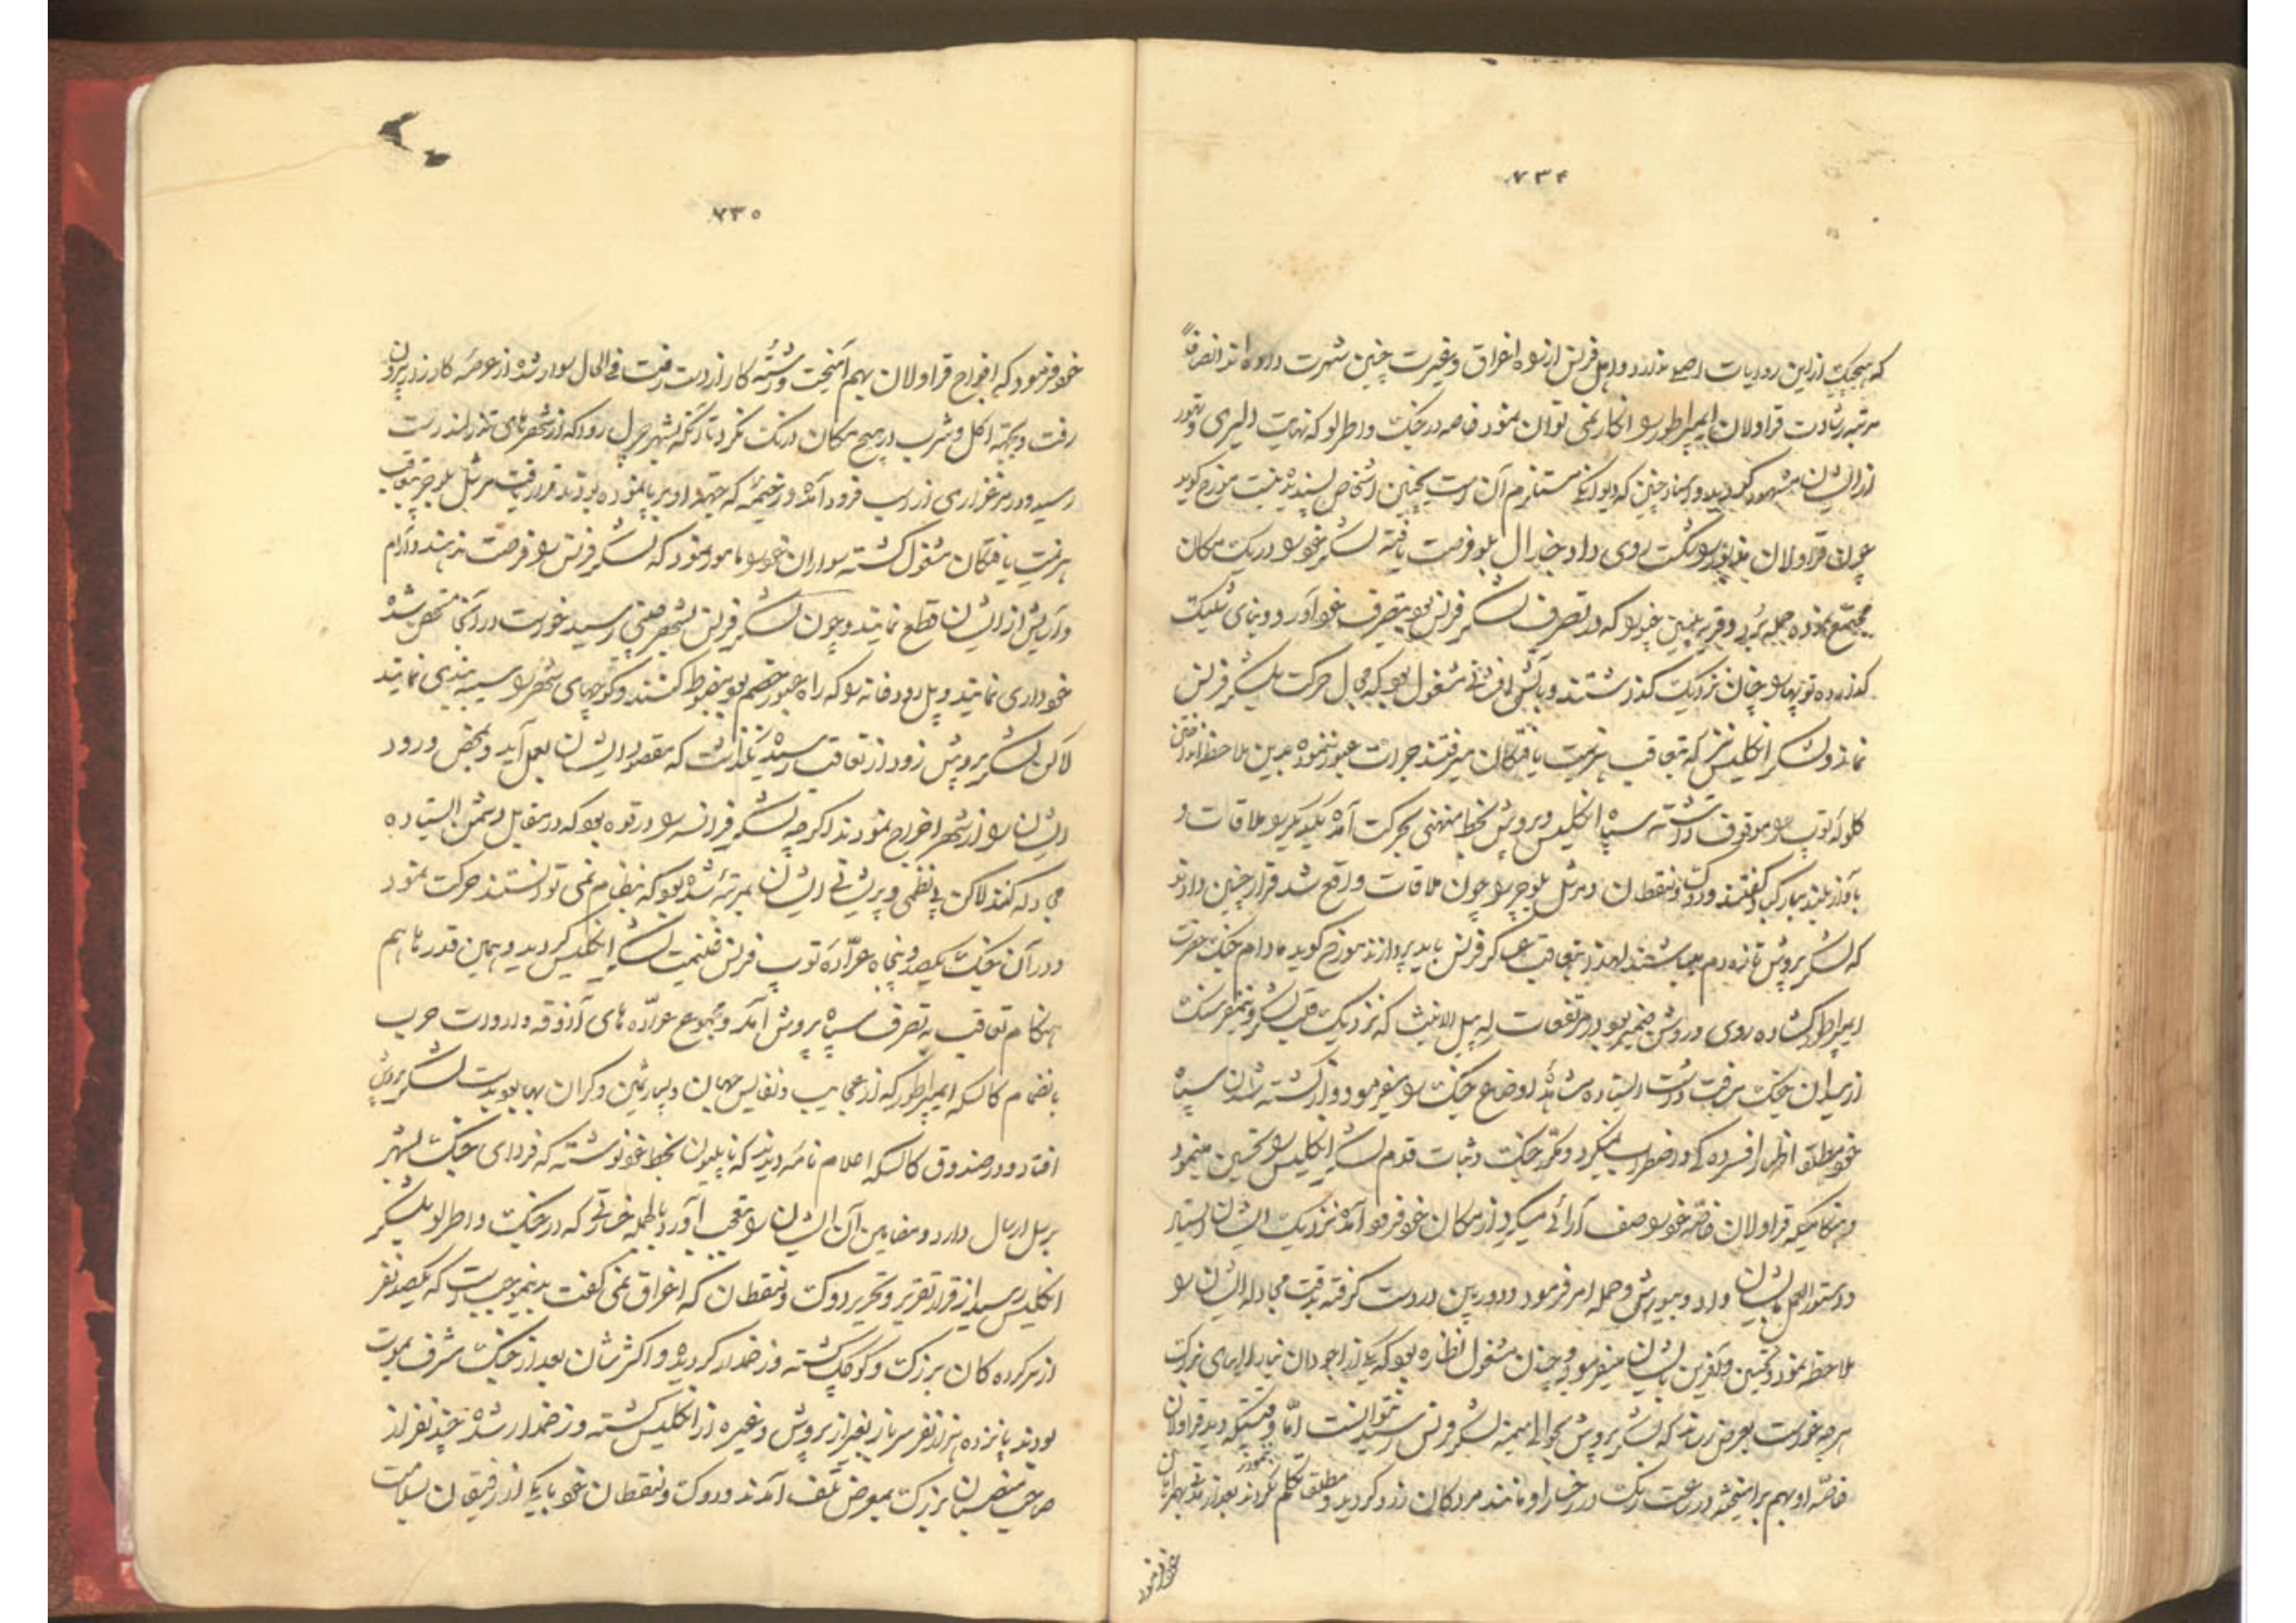 ۷۳۴
که هیچیک از این روایات اصلی ندارد و اهل فرنس از راه اغراق و غیرت چنین شهرت داده اند انصافاً
مرتبه رشادت قراولان ایمپراطور را انکار نمی توان نمود خاصه در جنک واطرلو که نهایت دلیری و تهور
از ایشان مشهود کردید و اسناد چنین که دیوانکی مستلزم آن است بچنین اشخاص پسندیده نیست مورخ کوید
چون قراولان را شکست روی داد جنرال بلوخر فرصت یافته لشکر خود را در یک مکان
مجتمع نموده حمله برد و قریه را که در تصرف لشکر فرنس بود بتصرف خود آورد و بنای شلیک
کذارده توپها را چنان نزدیک کذاشتند و بآتش افشانی مشغول بود که مجال حرکت بلشکر فرنس
نماند و لشکر انکلیس نیز که بتعاقب هزیمت یافتکان میرفتند جرات عبور ننموده بدین ملاحظه انداختن
کلوله توپ را موقوف داشته سپاه انکلیس و پروش بخط منحنی بحرکت آمده یکدیکر را ملاقات و
بآواز بلند مبارکباد کفتند و دوک ونقطان و مرشل بلوخر را چون ملاقات واقع شد قرار چنین دادند
که لشکر پروش تازه دم میباشند لهذا بتعاقب عساکر فرنس باید پردازند مورخ کوید مادام جنک حضرت
ایمپراطور کشاده روی و روشن ضمیر بود در مرتفعات له بیل الاینث که نزدیک قلب لشکر و نیم فرسنک
از میدان جنک مسافت داشت ایستاده مشاهده اوضاع جنک را میفرمود و از کشته شدن سپاه
خود مطلقا اظهار افسرده کی و اضطراب نمیکرد و مکرر جنک و ثبات قدم لشکر انکلیس را تحسین مینمود
و هنکامیکه قراولان خاصه خود را صف آرائی میکرد از مکان خود فرود آمده نزدیک ایشان ایستاد
و دستور العمل بایشان داد و بیورش و حمله امر فرمود و دوربین در دست کرفته بدقت مجادله ایشان را
ملاحظه نمود و تحسین و آفرین بایشان میفرمود و چندان مشغول نظاره بود که یکی از اجودان
هرچه خواست بعرض رساند که لشکر پروش بحوالی میمنه لشکر فرنس رسید نتوانست امّا وقتیکه دید قراولان
خاصّه او بهم برآمیخته در ساعت رنک رخسار او مانند مردکان زرد کردید و مطلق تکلم نکرد
خود فرمود
۷۳۵
خود فرمود که افواج قراولان بهم آمیخت و رشته کار از دست رفت فی الحال سوار شده از عرصه کارزار بیرون
رفت و بجهة اکل و شرب در هیچ مکان درنک نکرد تا آنکه بشهر چرل روا که از شهرهای ندرلند است
رسید و در مرغزاری از اسب فرود آمده در خیمه که بجهة او برپا نموده بودند قرار یافت مرشل بلوخر بتعاقب
هزیمت یافتکان مشغول کشته سواران خود را مامور نمود که لشکر فرنس را فرصت ندهند و آرام
و آسایش از ایشان قطع نمایند و چون لشکر فرنس بشهر جنپی رسید خواست در آنجا متحصن شده
خودداری نمایند و پل رودخانه را که راه عبور خصم بود مضبوط کنند و کوچهای شهر را سیبه بندی نمایند
لاکن لشکر پروش زود از تعاقب رسیده نکذاشت که مقصود ایشان بعمل آید و بمحض ورود
ایشان را از شهر اخراج نمودند اکرچه لشکر فرانسه را در قوه بود که در مقابل دشمن ایستاده
مجادله کنند لاکن بی نظمی و پریشانی ایشان بمرتبه شده بود که بنظام نمی توانستند حرکت نمود
و در آن جنک یکصد و پنجاه عرّاده توپ فرنس غنیمت لشکر انکلیس کردید و همین قدرها هم
هنکام تعاقب به تصرف سپاه پروش آمد و مجموع عرّاده های آذوقه و ادوات حرب
بانضمام کالسکه ایمپراطور که از عجایب و نفایس جهان و بسیار ثمین و کران بها بود بدست لشکر پروش
افتاد و در صندوق کالسکه اعلام نامه دیدند که ناپلیون بخط خود نوشته که فردای جنک بشهر
برسل ارسال دارد و مضامین آن ایشان را بتعجب آورد بالجمله خسارتی که در جنک واطرلو بلشکر
انکلیس رسید از قرار تقریر و تحریر دوک ونقطان که اغراق نمی کفت بدینموجب است که یکصد نفر
از سرکرده کان بزرک و کوچک کشته و زخمدار کردیده و اکثر شان بعد از جنک مشرف بموت
بودند پانزده هزار نفر سرباز بغیر از پروش و غیره از انکلیس کشته و زخمدار شده چند نفر از
صاحب منصبان بزرک بمعرض تلف آمدند و دوک ونقطان خود با یکی از رفیقان بسلامت